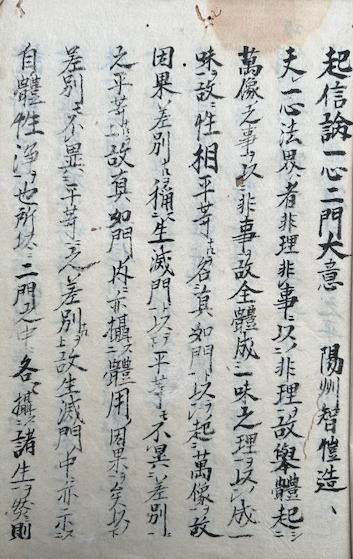 起信論一心二門大意　陽州智愷造
夫一心法界者非理非事以非理故舉體起
萬像之事以非事故全體成一味之理以成一
味故性相平等名真如門以起萬像故
因果差別稱生滅門以平等不冥差別
之平等故真如門内亦攝體用因果矣以
差別不異平等之差別故生滅門中亦示
自體性淨也所以二門之中各攝諸生矣則